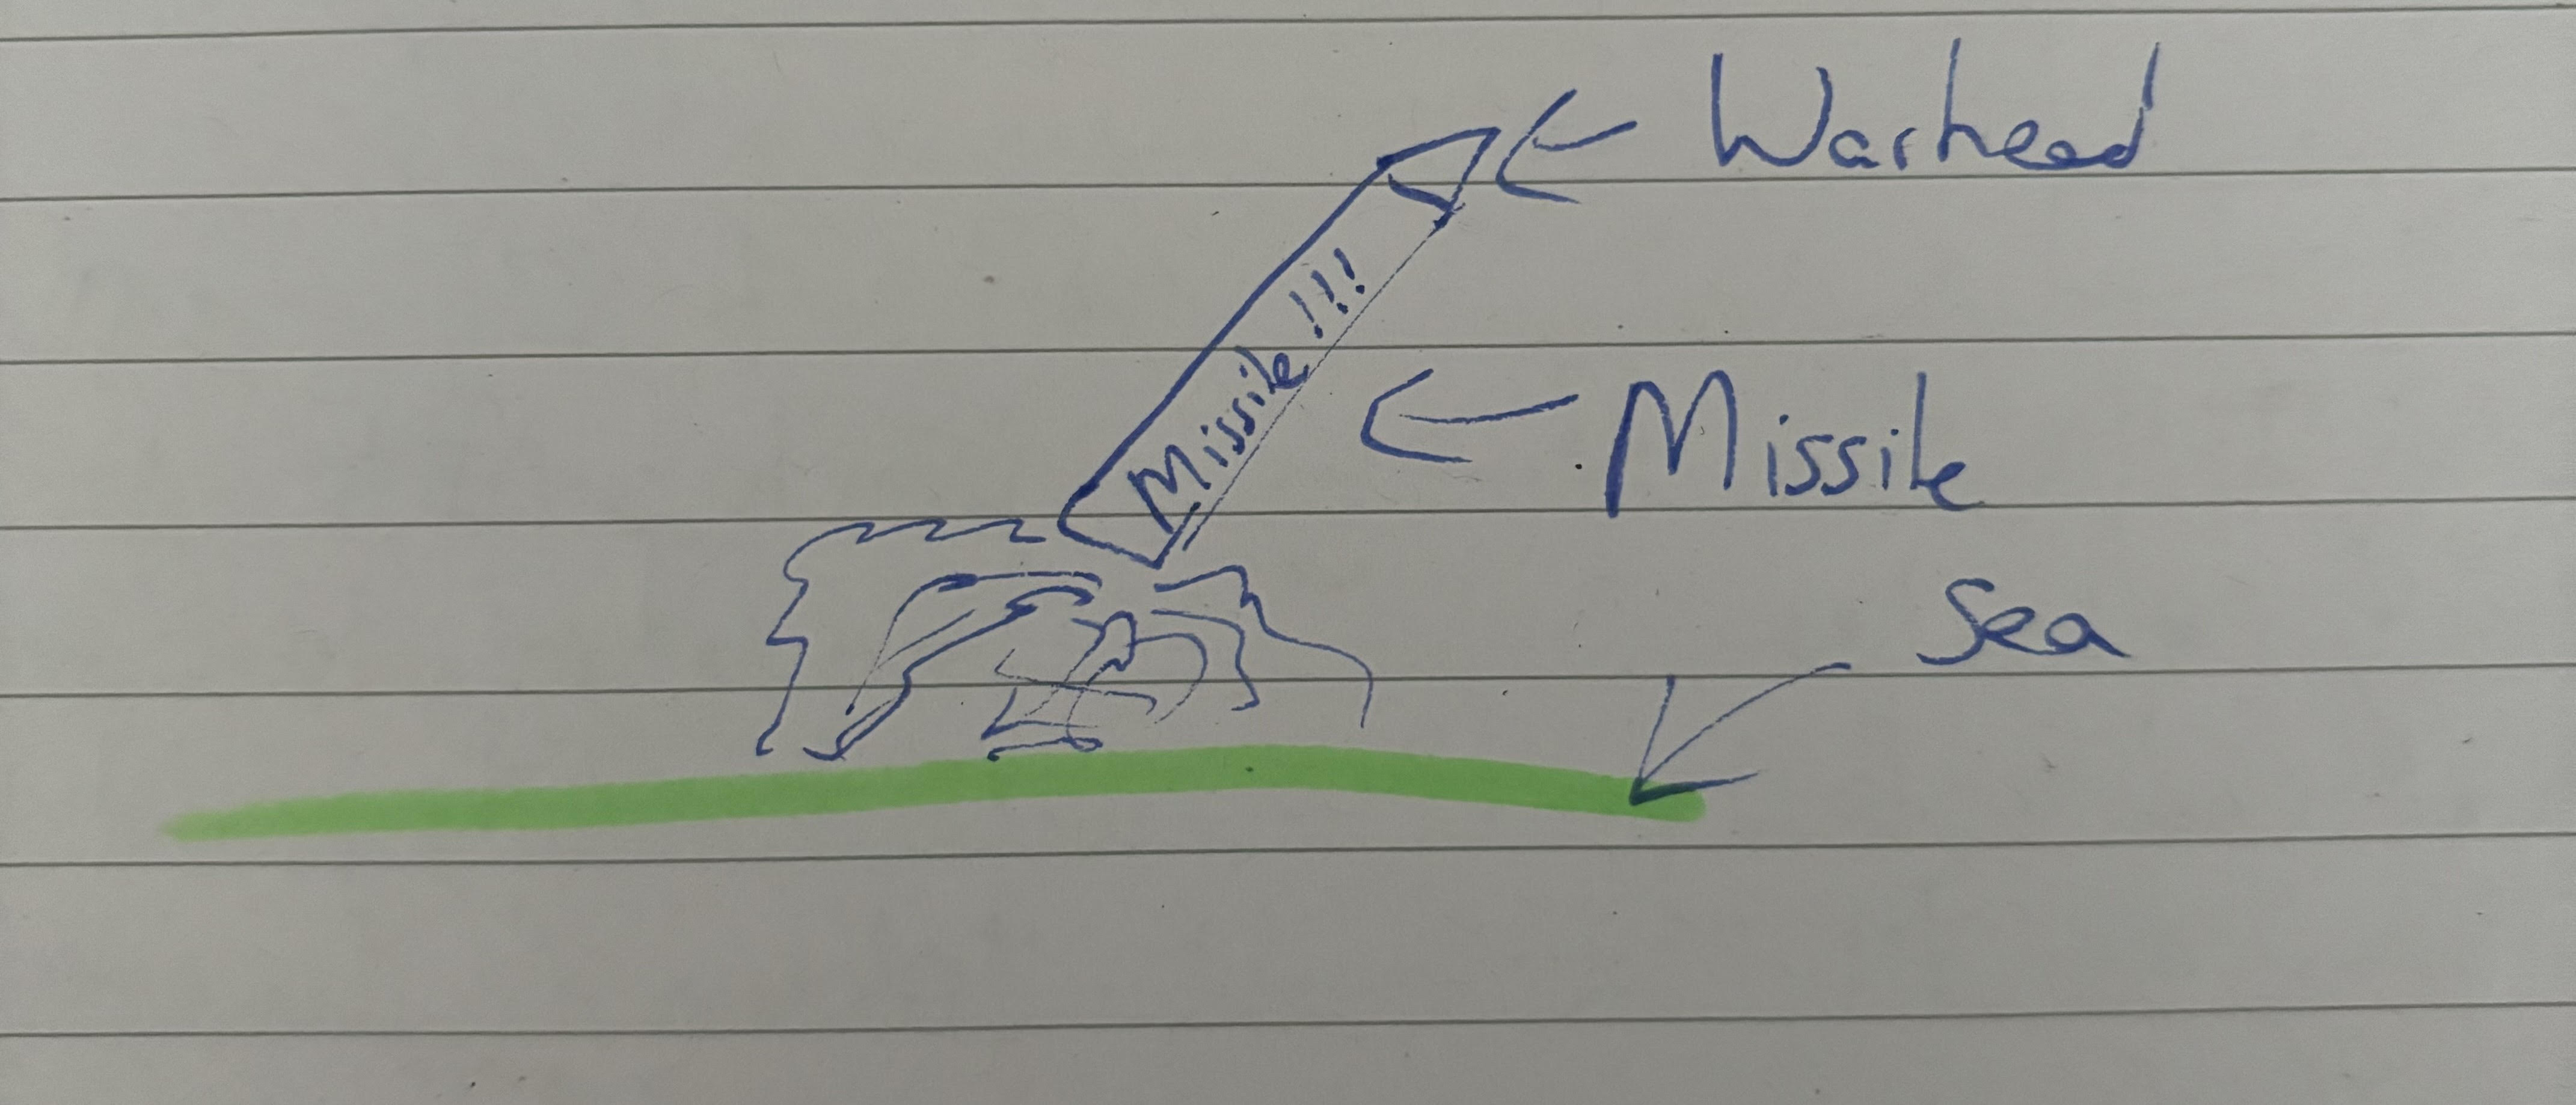 Warhead
Missile !!!
Missile
Sea